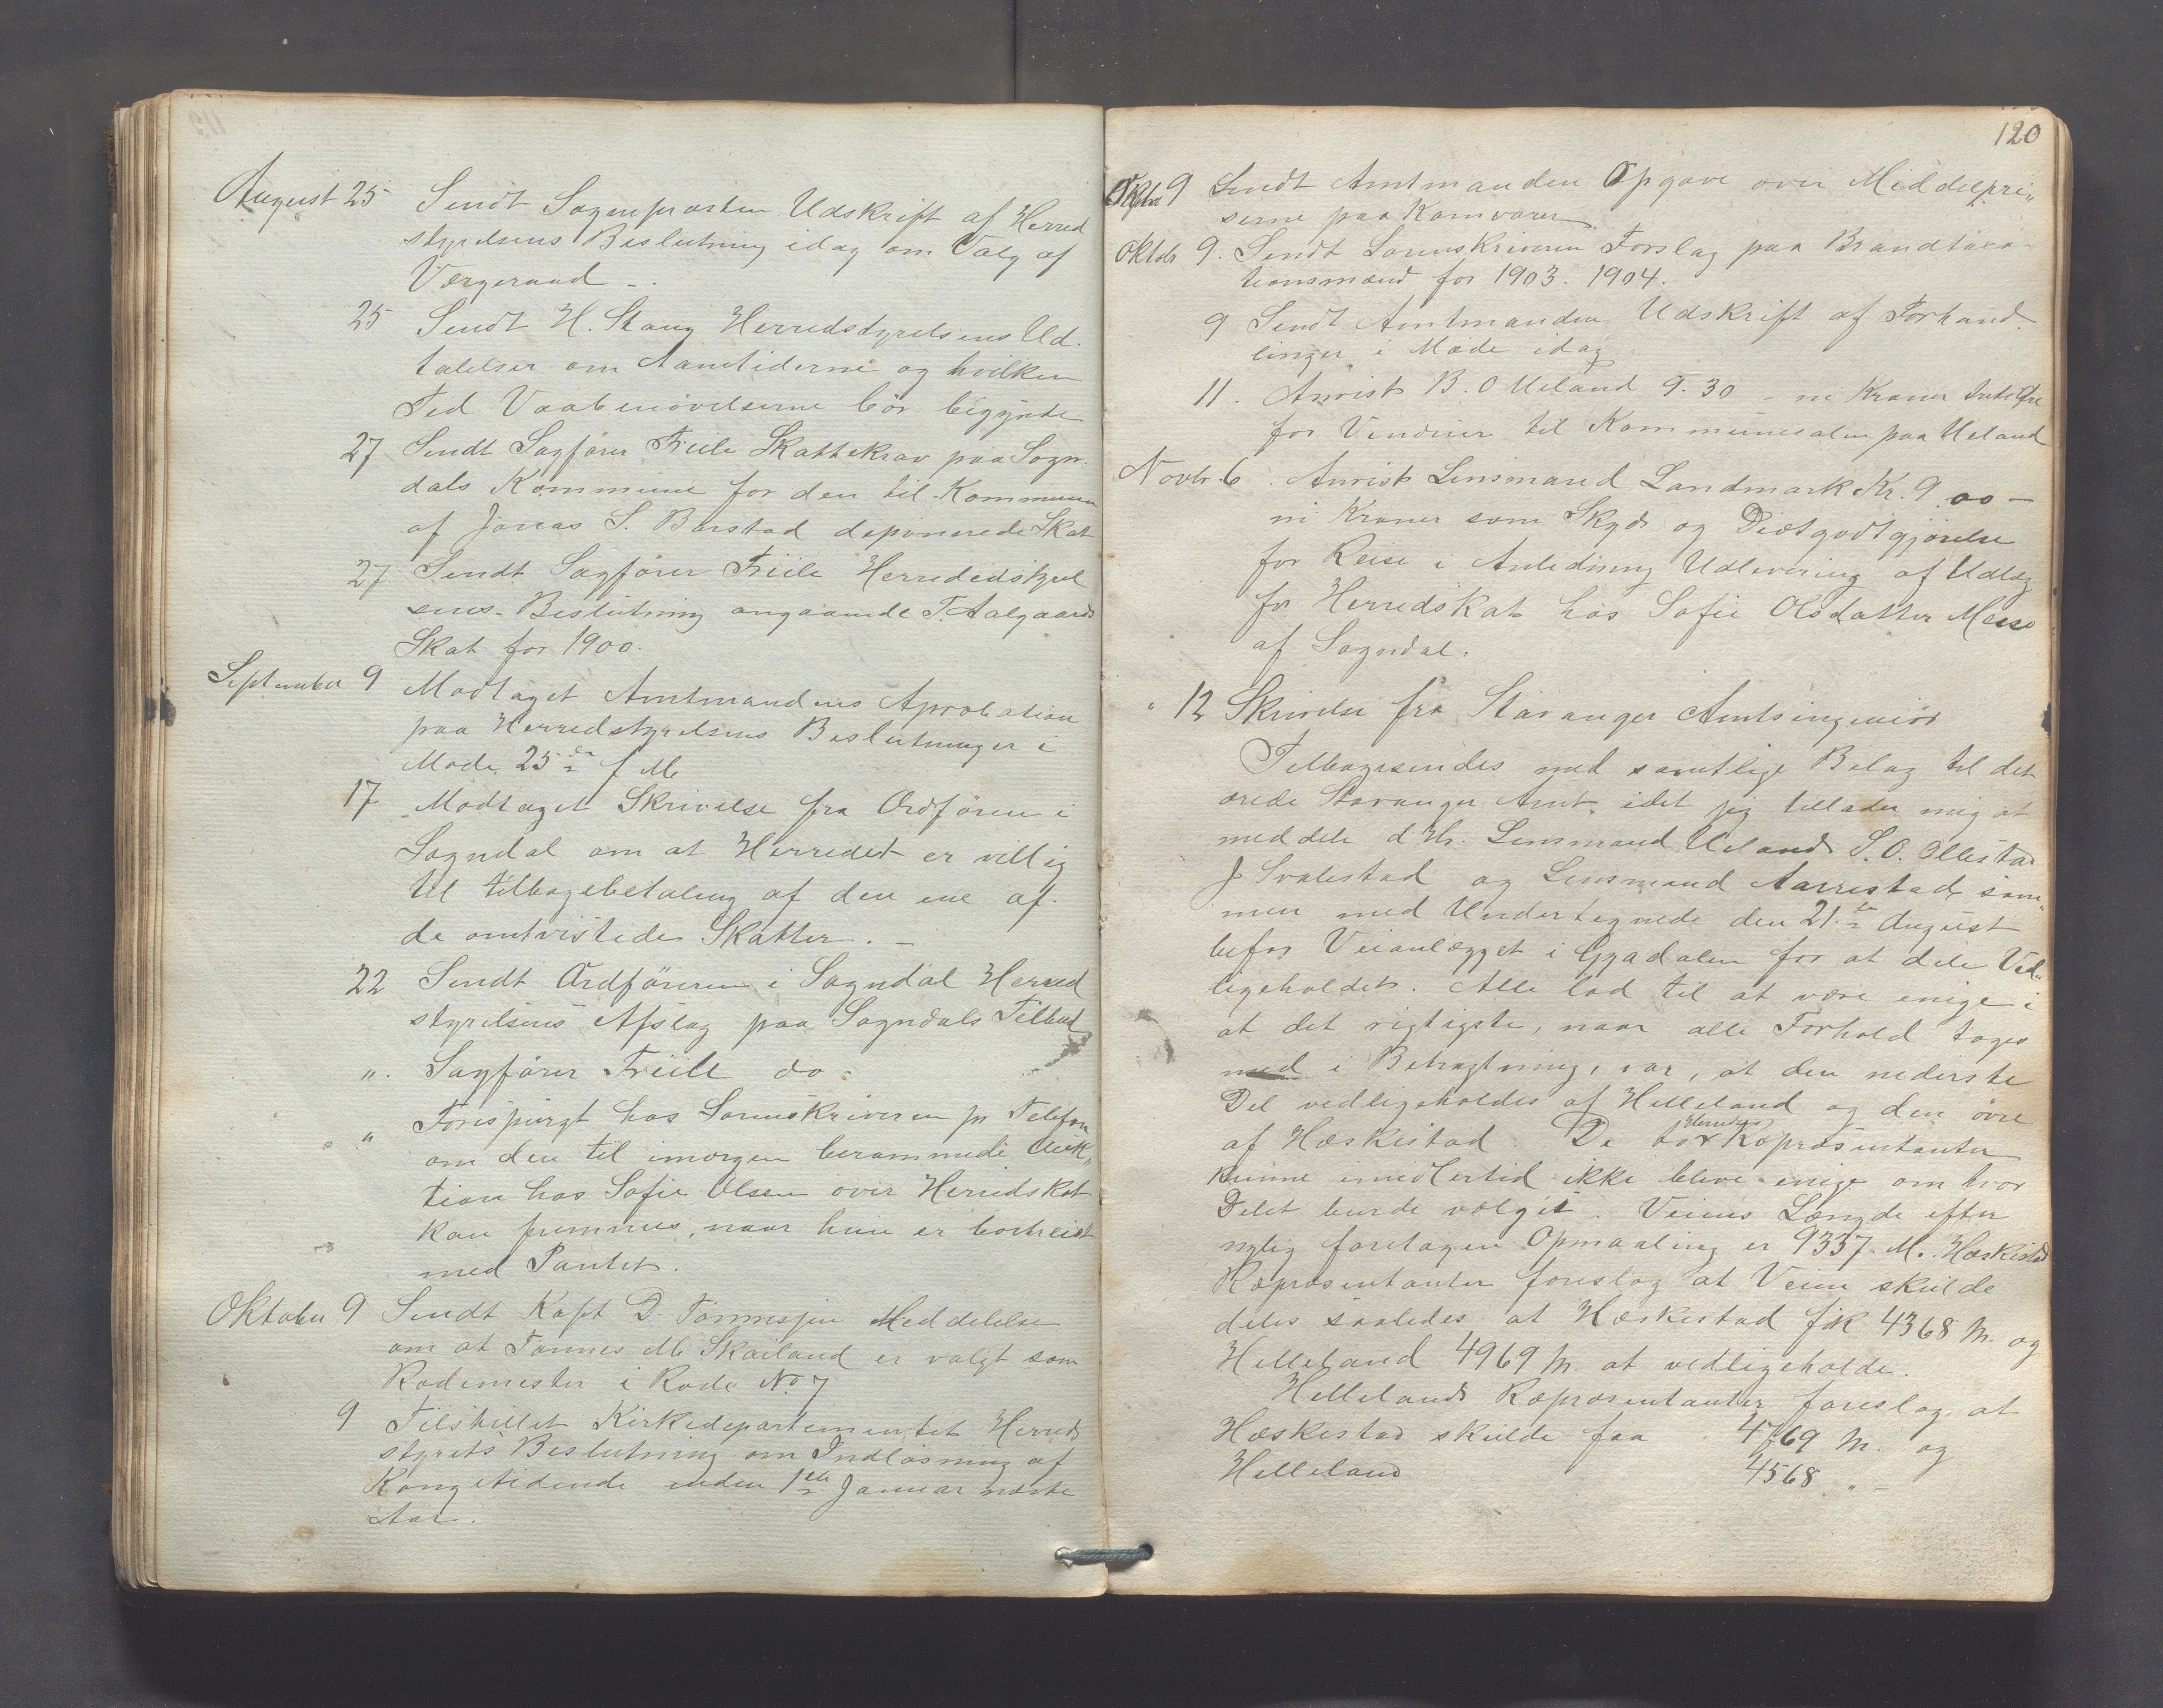 August 25 Sendt Sognepræsten Udskrift af Herred
styrelsens Beslutning idag om Valg af
Værgeraad -.
25 Sendt H. Stang Herredstyrelsens Ud.
talelser om Aanetiderne og hvilken
Tid Vaabenøvelserne bør begynde
27 Sendt Sagfører Friile Skattekrav paa Sogn
dals Kommune for den til Kommunen
af Jonas S. Barstad deponerede Skat
27 Sendt Sagfører Friile Herrededstyrel
sens Beslutning angaaende T. Aalgaards
Skat for 1900.
September 9 Modtaget Amtmandens Aprobation
paa Herredstyrelsens Beslutninger i
Møde 25de f M
17 Modtaget Skrivelse fra Ordføren i
Sogndal om at Herredet er villig
til tilbagebetaling af den ene af
de omtvistede Skatter. -
22 Sendt Ordføreren i Sogndal Herred
styrelsens Afslag paa Sogndals Tilbud
". Sagfører Friile do.
" Forespurgt hos Sorenskriveren pr Telefon
om den til imorgen berammede Auk„
tion hos Sofie Olsen over Herredskat
kan fremmes, naar hun er bortreist
med Pantet.
Oktober 9 Sendt Kapt D. Tønnesjen Meddelelse
om at Tønnes M. Skailand er valgt som
Rodemester i Rode No. 7
9 Tilstillet Kirkedepartementet Herreds
styrets Beslutning om Indløsning af
Kongetidende inden 1ste Januar næste
Aar.
120
Oktbr 9 Sendt Amtmanden Opgave over Middelpri„
serne paa Kornvarer
Oktob 9. Sendt Sorenskriveren Forslag paa Brandtaxa-
tionsmænd for 1903. 1904.
9 Sendt Amtmanden Udskrift af Forhand.
linger i Møde idag
11. Anvist B. O Ueland 9.30 - ni Kroner treti Øre
for Vinduer til Kommunesalen paa Ueland
Novbr. 6. Anvist Lensmand Landmark Kr. 9.00 -
ni Kroner som Skyds og Diætgodtgjørelse
for Reise i Anledning Udlevering af Udlæg
for Herredskat hos Sofie Olsdatter
af Sogndal.
" 12 Skrivelse fra Stavanger Amtsingeniør
Tilbagesendes med samtlige Bilag til det
ærede Stavanger Amt idet jeg tillader mig at
meddele d Hr. Lensmand Ueland S. O. Ollestad
J Svalestad og Lensmand Aarrestad sam„
men med Undertegnede den 21.de August
befor Veianlægget i Gyadalen for at dele Ved„
ligeholdet. Alle lod til at være enige i
at det rigtigste, naar alle Forhold toges
med i Betragtning, var, at den nederste
Del vedligeholdes af Helleland og den øvre
af Heskestad. De to Herreders Repræsentanter
kunne imedlertid ikke blive enige om hvor
Delet burde vælges. Veiens Længde efter
nylig foretagen Opmaaling er 9337 M. Heskestad
Repræsentanter foreslog at Veien skulde
deles saaledes at Heskestad fik 4368 M. og
Helleland 4969 M. at vedligeholde.
Hellelands Repræsentanter foreslog at
Heskestad skulde faa 4769 M. og
Helleland 4568 „ -